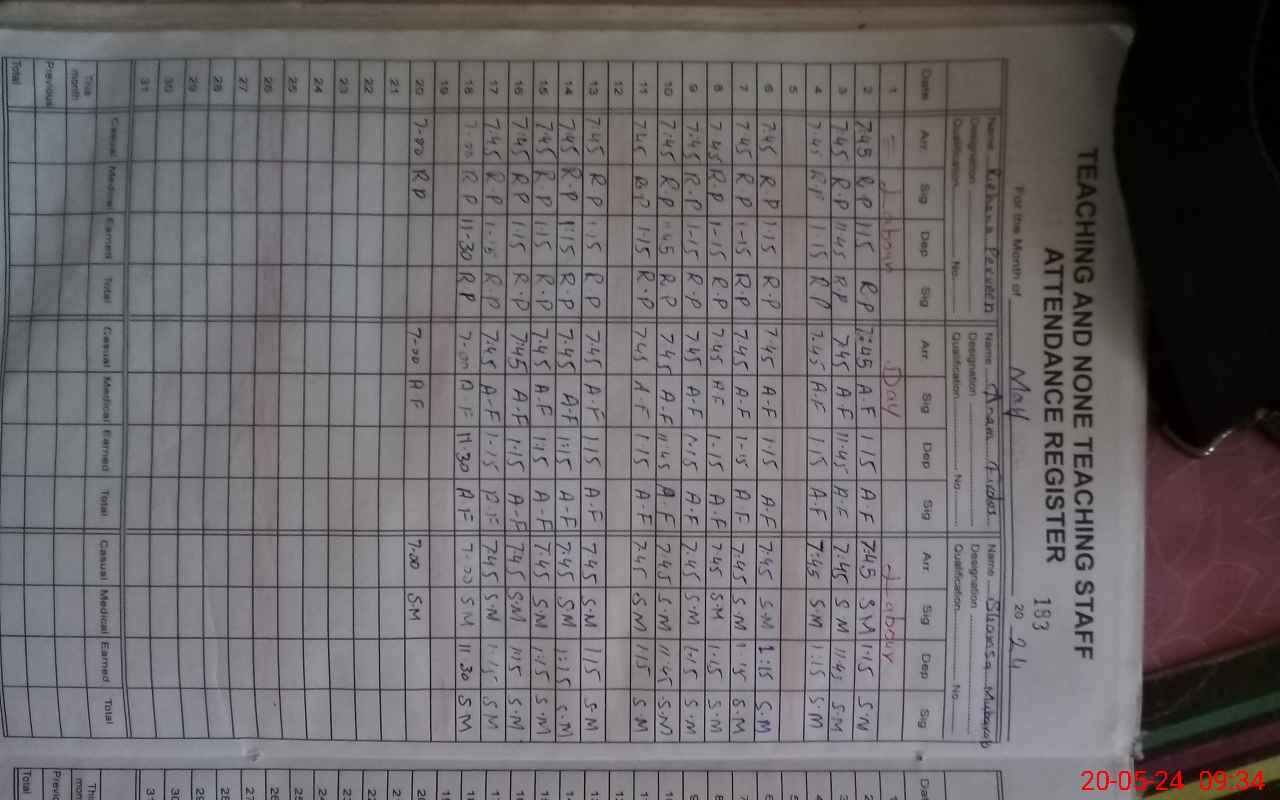 TEACHING AND NONE TEACHING STAFF
ATTENDANCE REGISTER 183
For the Month of May 20 24
Name Rehana Perveen Name Anam Firdos Name
Designation Designation Designation
Qualification No. Qualification No. Qualification No.
Date Arr Sig Dep Sig Arr Sig Dep Sig Arr Sig Dep Sig
1 = Labour Day Labour
2 7:45 R.P 1:15 R.P 7:45 A.F 1:15 A.F 7:45 S.M 1:15 S.M
3 7:45 R.P 11:45 R.P 7:45 A.F 11:45 A.F 7:45 S.M 11:45 S.M
4 7:45 R.P 1:15 R.P 7:45 A.F 1:15 A.F 7:45 S.M 1:15 S.M
5
6 7:45 R.P 1:15 R.P 7:45 A.F 1:15 A.F 7:45 S.M 1:15 S.M
7 7:45 R.P 1-15 R.P 7:45 A.F 1-15 A.F 7:45 S.M 1:15 S.M
8 7:45 R.P 1-15 R.P 7:45 A.F 1-15 A.F 7:45 S.M 1:15 S.M
9 7:45 R.P 1-15 R.P 7:45 A.F 1:15 A.F 7:45 S.M 1:15 S.M
10 7:45 R.P R.P 7:45 A.F 11:45 A.F 7:45 S.M 11:45 S.M
11 7:45 R.P 1:15 R.P 7:45 A.F 1:15 A.F 7:45 S.M 1:15 S.M
12
13 7:45 R.P 1:15 R.P 7:45 A.F 1:15 A.F 7:45 S.M 1:15 S.M
14 7:45 R.P 1:15 R.P 7:45 A.F 1:15 A-F 7:45 S.M 1:15 S.M
15 7:45 R.P 1:15 R.P 7:45 A.F 1:15 A-F 7:45 S.M 1:15 S.M
16 7:45 R.P 1:15 R.P 7:45 A.F 1:15 A-F 7:45 S.M 1:15 S.M
17 7:45 R.P 1-15 R.P 7:45 A-F 1-15 7:45 S.M 1:15 S.M
18 7-00 R.P 11-30 R.P 7-00 A.F 11:30 A F 7-00 S.M 11:30 S.M
19
20 7-00 R.P 7-00 A.F 7-00 S.M
21
22
23
24
25
26
27
28
29
30
31
Casual Medical Earned Total Casual Medical Earned Total Casual Medical Earned Total
This month
Previous
Total
20-05-24 09:34